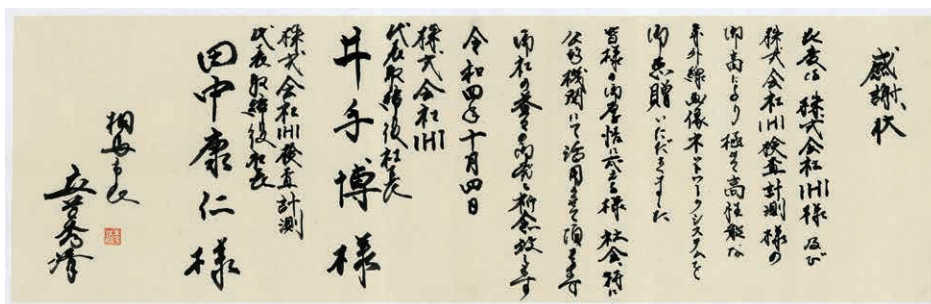 感謝状
此度は株式会社IHI様及び
株式会社IHI検査計測様の
御高配により極めて高性能な
赤外線画像ネットワークシステムを
御恵贈いただきました
皆様の御厚情に六 様 社会 特に
公的機関にて活用させて頂きます
御社の益々の御発展を祈念致します
令和四年十月四日
株式会社IHI
代表取締役社長
井手博様
株式会社IHI検査計測
代表取締役社長
田中康仁様
相馬市長
立谷秀清